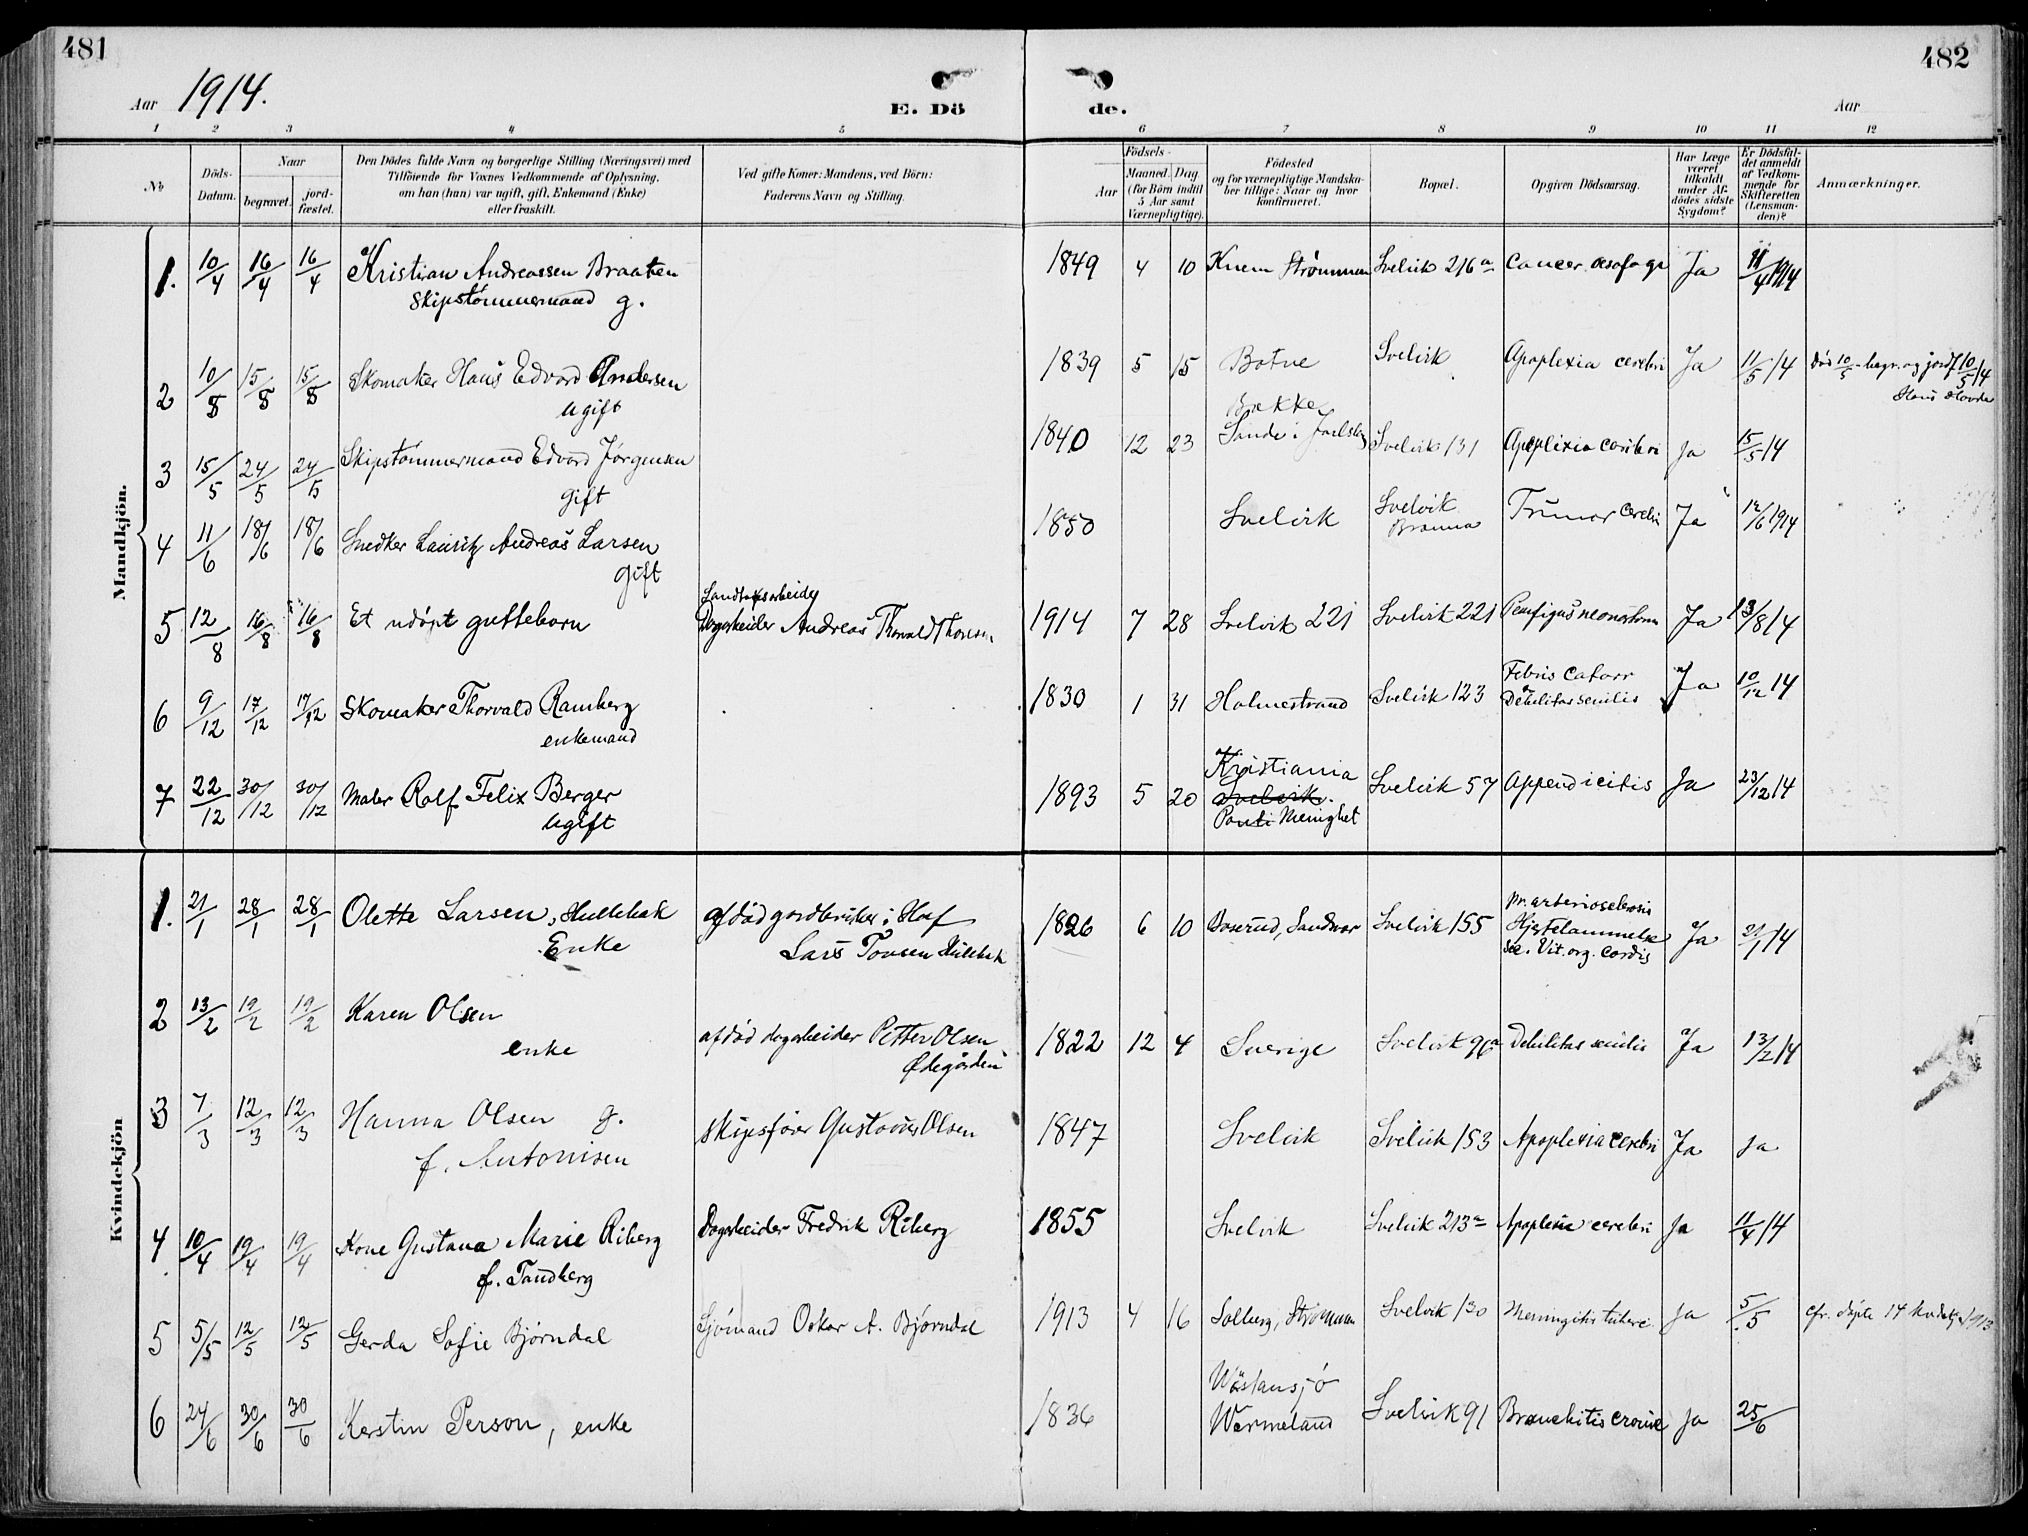 481
482
Aar 1914.
E. Dö
de.
Aar
1 2 3 4 5 6 7 8 9 10 11 12
No
Döds-Datum.
Naar
begravet.
jord-fæstet.
Den Dödes fulde Navn og borgerlige Stilling (Næringsvei) med
Tilföiende for Voxnes Vedkommende af Oplysning,
om han (hun) var ugift, gift, Enkemand (Enke)
eller fraskilt.
Ved gifte Koner: Mandens, ved Börn:
Faderens Navn og Stilling.
Födsels-
Aar
Maaned. Dag
(for Börn indtil
5 Aar samt
Værnepligtige).
Födested
og for værnepligtige Mandska-
ber tillige: Naar og hvor
konfirmeret.
Bopæl.
Opgiven Dödsaarsag.
Har Læge
været
tilkaldt
under Af-
dödes sidste
Sygdom?
Er Dödsfal-
det anmeldt
af Vedkom-
mende for
Skifteretten
(Lensman-
den)?
Anmærkninger.
Mandkjön.
1. 10/4 16/4 16/4 Kristian Andreassen Braaten 1849 4 10 Knem Strømmen Svelvik 216a Cancer. øsofagi Ja 11/4 1914
Skipstømmermand g.
2 10/5 15/5 15/5 Skomaker Hans Edvard Andersen 1839 5 15 Botne Svelvik Apoplexia cerebri Ja 11/5 14 Död 10/5 - begr. og jordf. 10/5 14
ugift Hans Hovde
3 15/5 24/5 24/5 Skipstømmermand Edvard Jørgensen 1840 12 23 Bakke Sande i Jarlsberg Svelvik 131 Apoplexia cerebri Ja 15/5 14
gift
4 11/6 18/6 18/6 Snedker Lauritz Andreas Larsen 1850 Svelvik Svelvik Cerebri Ja 12/6 1914
gift
Landtoksarbeider
5 12/8 16/8 16/8 Et udøpt guttebarn Dagarbeider Andreas Thorvald 1914 7 28 Svelvik 221 Svelvik 221 Pemfigus neonatorum Ja 13/8 14
6 9/12 17/12 17/12 Skomaker Thorvald Ramberg 1830 1 31 Holmestrand Svelvik 123 Febris Catarr Debilitas senilis Ja 10/12 14
enkemand
7 22/12 30/12 30/12 Maler Rolf Felix Berger 1893 5 20 Kristiania Svelvik. Menighet Svelvik 57 Appendicitis Ja 23/12 14
ugift
Kvindekjön
1. 21/1 28/1 28/1 Olette Larsen, Hullebak afdöd gardbruker i Hof 1826 6 10 Sandsvær Svelvik 155 arteriosclerosis Ja 21/1 14
Enke Lars Tovsen Hullebak Sec. Vit. org. Cordis
2 13/2 19/2 19/2 Karen Olsen afdöd dagarbeider Petter Olsen 1822 12 4 Sverige Svelvik 96a Debilitas senilis Ja 13/2 14
enke Ødegården
3 7/3 12/3 12/3 Hanna Olsen g. skipsfører Gustavus Olsen 1847 Svelvik Svelvik 153 Apoplexia cerebri Ja Ja
f. Antonisen
4 10/4 19/4 19/4 Kone Gustava Marie Riberg Dagarbeider Fredrik Riberg 1855 Svelvik Svelvik 213a Apoplexia cerebri Ja 11/4 14
f. Tandberg
5 5/5 12/5 12/5 Gerda Sofie Bjørndal Sjömand Oskar A. Bjørndal 1913 4 16 Solberg, Strømmen Svelvik 130 Meningitis tuberc. Ja 5/5 cfr. døpte 14 1913
6 24/6 30/6 30/6 Kerstin Person, enke 1836 Wästansjö Wermeland Svelvik 91 Bronchitis Ja 25/6